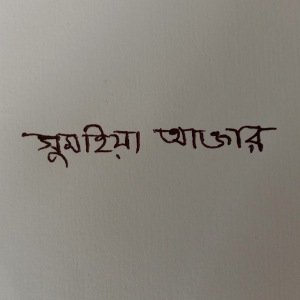 সুমাইয়া আক্তার